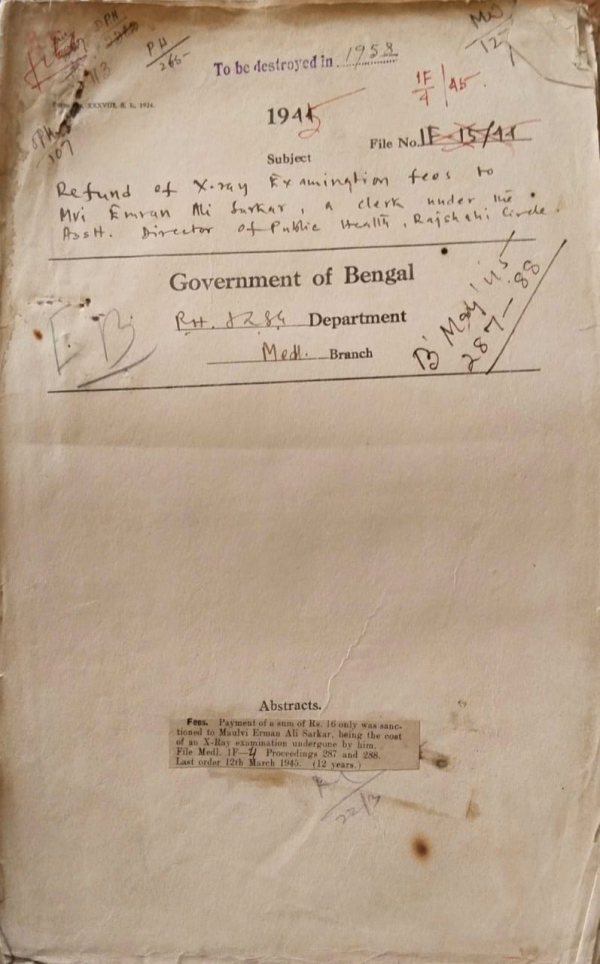 DPH
PH
265
MW
12
To be destroyed in 1958
1F
4/45.
Form No. XXXVIII, S. I., 1924.
DPH
107
1945
File No. 1F-15/44
Subject
Refund of X-ray Examination fees to
Mvi Emran Ali Sarkar, a clerk under the
Asstt. Director of Public Health, Rajshahi Circle.
Government of Bengal
Department
Medl. Branch
B May/45
287-88
Abstracts.
Fees. Payment of a sum of Rs. 16 only was sanc-
tioned to Maulvi Erman Ali Sarkar, being the cost
of an X-Ray examination undergone by him.
File Medl. 1F—4 Proceedings 287 and 288.
Last order 12th March 1945. (12 years.)
22/3